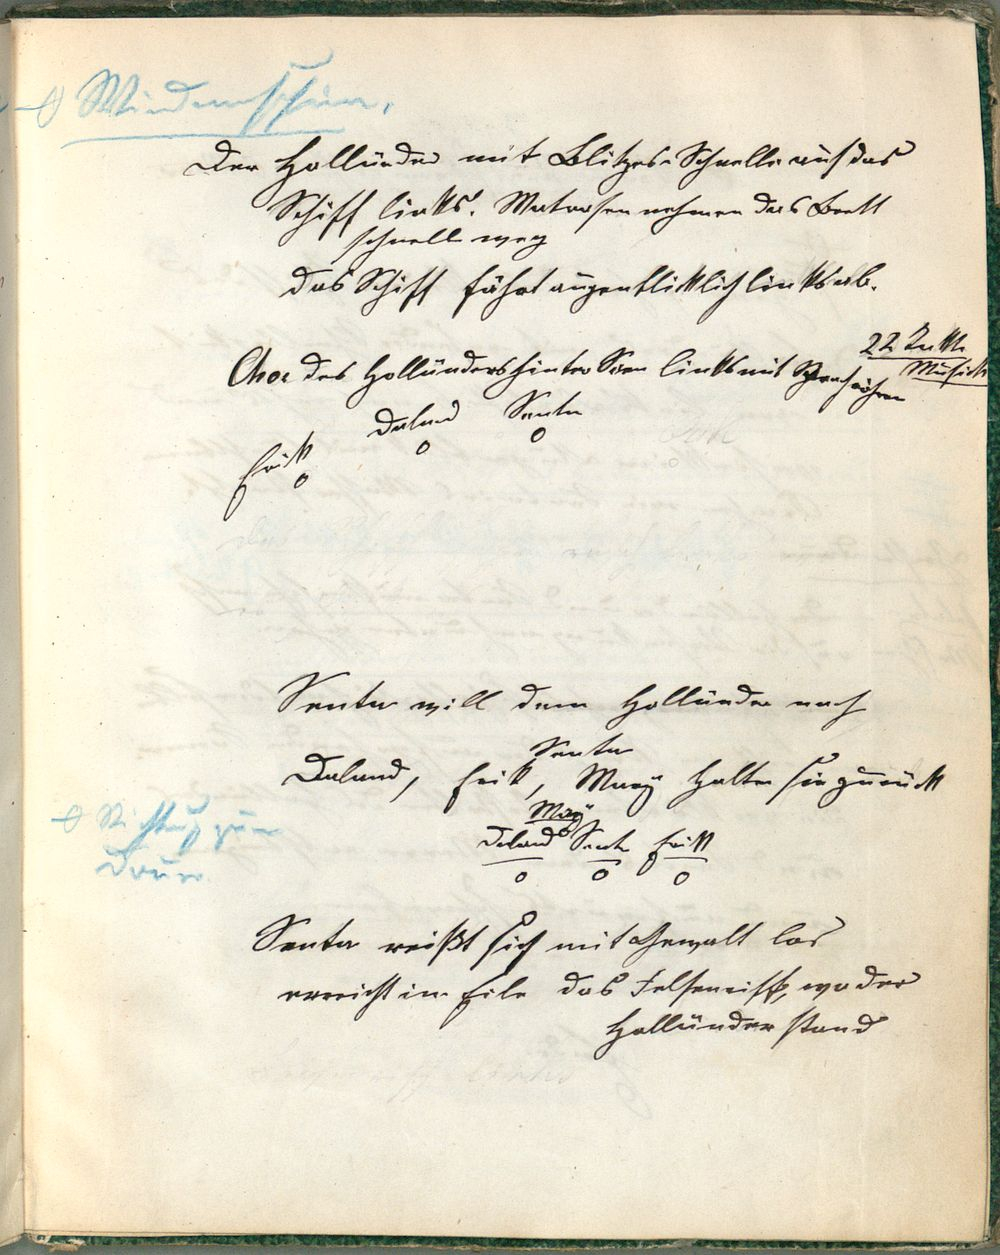 Windmaschine.
Der Holländer mit Blitzes-Schnelle auf das
Schiff links. Matrosen nehmen das Brett
schnell weg
das Schiff fährt augenblicklich links ab.
22 Takte
Musick
Chor des Holländers hinter Scen links mit Sprachröhren
Daland Senta
Erik
Senta will dem Holländer nach
Senta
Daland, Erik, Mary halten sie zurück
Mary
Daland Senta Erik
Senta reißt sich mit Gewalt los
erreicht in Eile das Felsenriff, wo der
Holländer stand